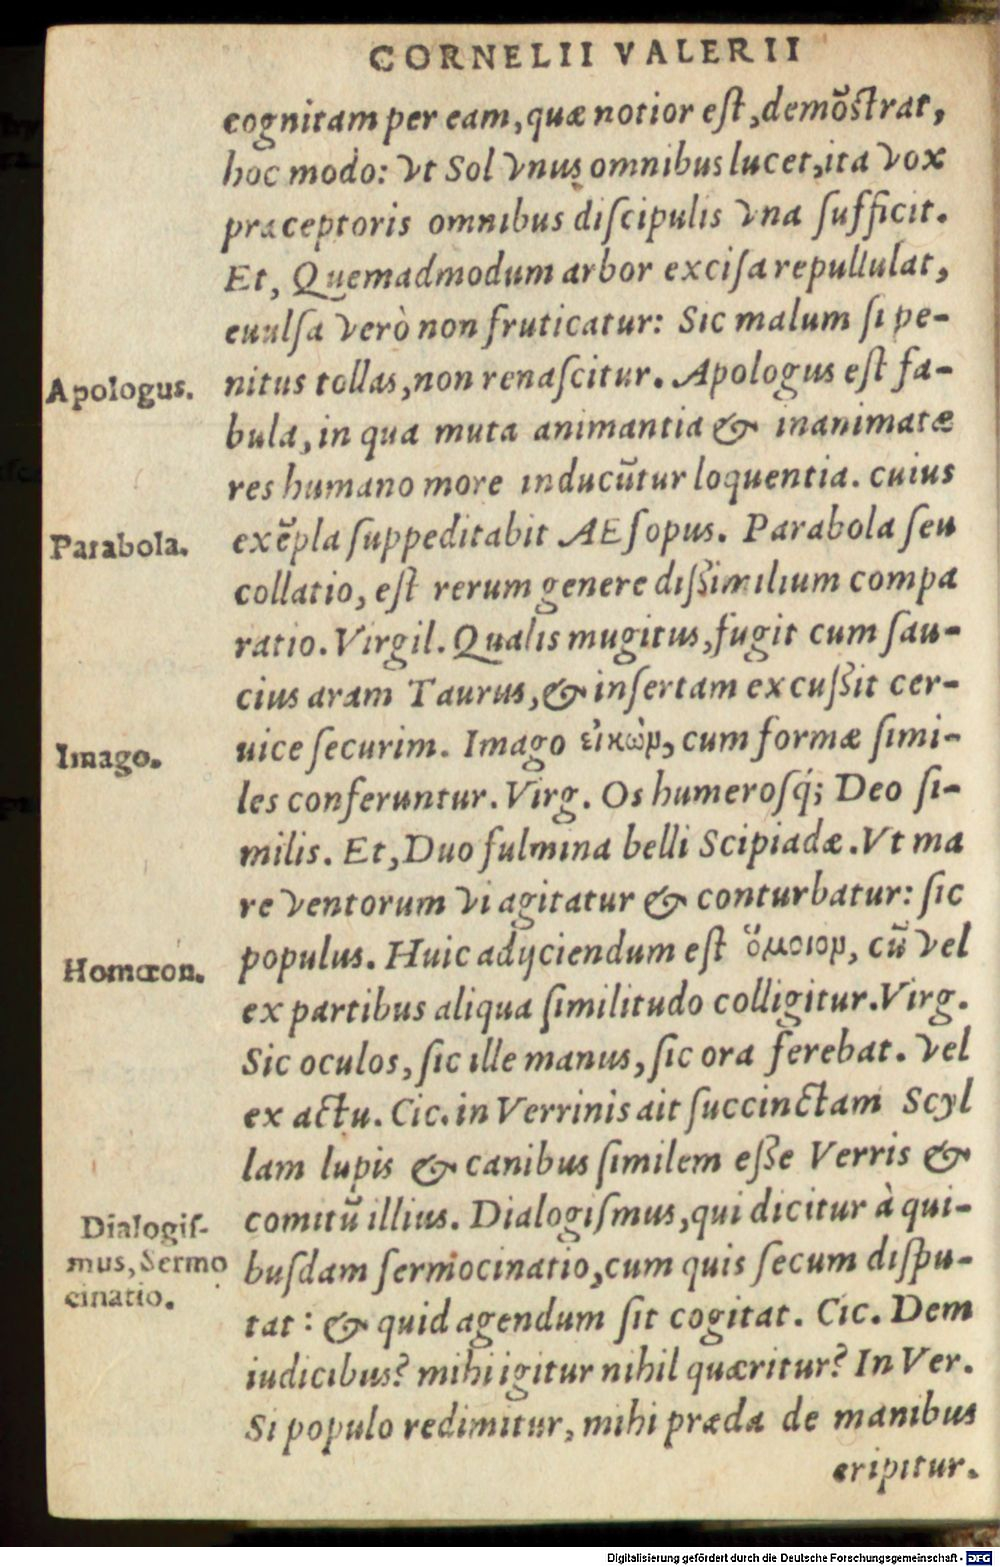 CORNELII VALERII
cognitam per eam, quæ notior eſt, demõſtrat,
hoc modo: Vt Sol Vnus omnibus lucet, ita Vox
præceptoris omnibus diſcipulis Vna ſufficit.
Et, Quemadmodum arbor exciſa repullulat,
euulſa Verò non fruticatur: Sic malum ſi pe-
Apologus.
nitus tollas, non renaſcitur. Apologus eſt fa-
bula, in qua muta animantia & inanimatæ
res humano more inducũtur loquentia. cuius
Parabola.
exẽpla ſuppeditabit AEſopus. Parabola ſeu
collatio, eſt rerum genere dißimilium compa
ratio. Virgil. Qualis mugitus, fugit cum ſau-
cius aram Taurus, & inſertam excußit cer-
Imago.
uice ſecurim. Imago εἰκὼν, cum formæ ſimi-
les conferuntur. Virg. Os humeroſq́; Deo ſi-
milis. Et, Duo fulmina belli Scipiadæ. Vt ma
re Ventorum Vi agitatur & conturbatur: ſic
Homœon.
populus. Huic adijciendum eſt ὅμοιον, cũ Vel
ex partibus aliqua ſimilitudo colligitur. Virg.
Sic oculos, ſic ille manus, ſic ora ferebat. Vel
ex actu. Cic. in Verrinis ait ſuccinctam Scyl
lam lupis & canibus ſimilem eſſe Verris &
Dialogiſ-
mus, Sermo
cinatio.
comitũ illius. Dialogiſmus, qui dicitur à qui-
buſdam ſermocinatio, cum quis ſecum diſpu-
tat: & quid agendum ſit cogitat. Cic. Dem
iudicibus? mihi igitur nihil quæritur? In Ver.
Si populo redimitur, mihi præda de manibus
eripitur.
Digitalisierung gefördert durch die Deutsche Forschungsgemeinschaft - DFG